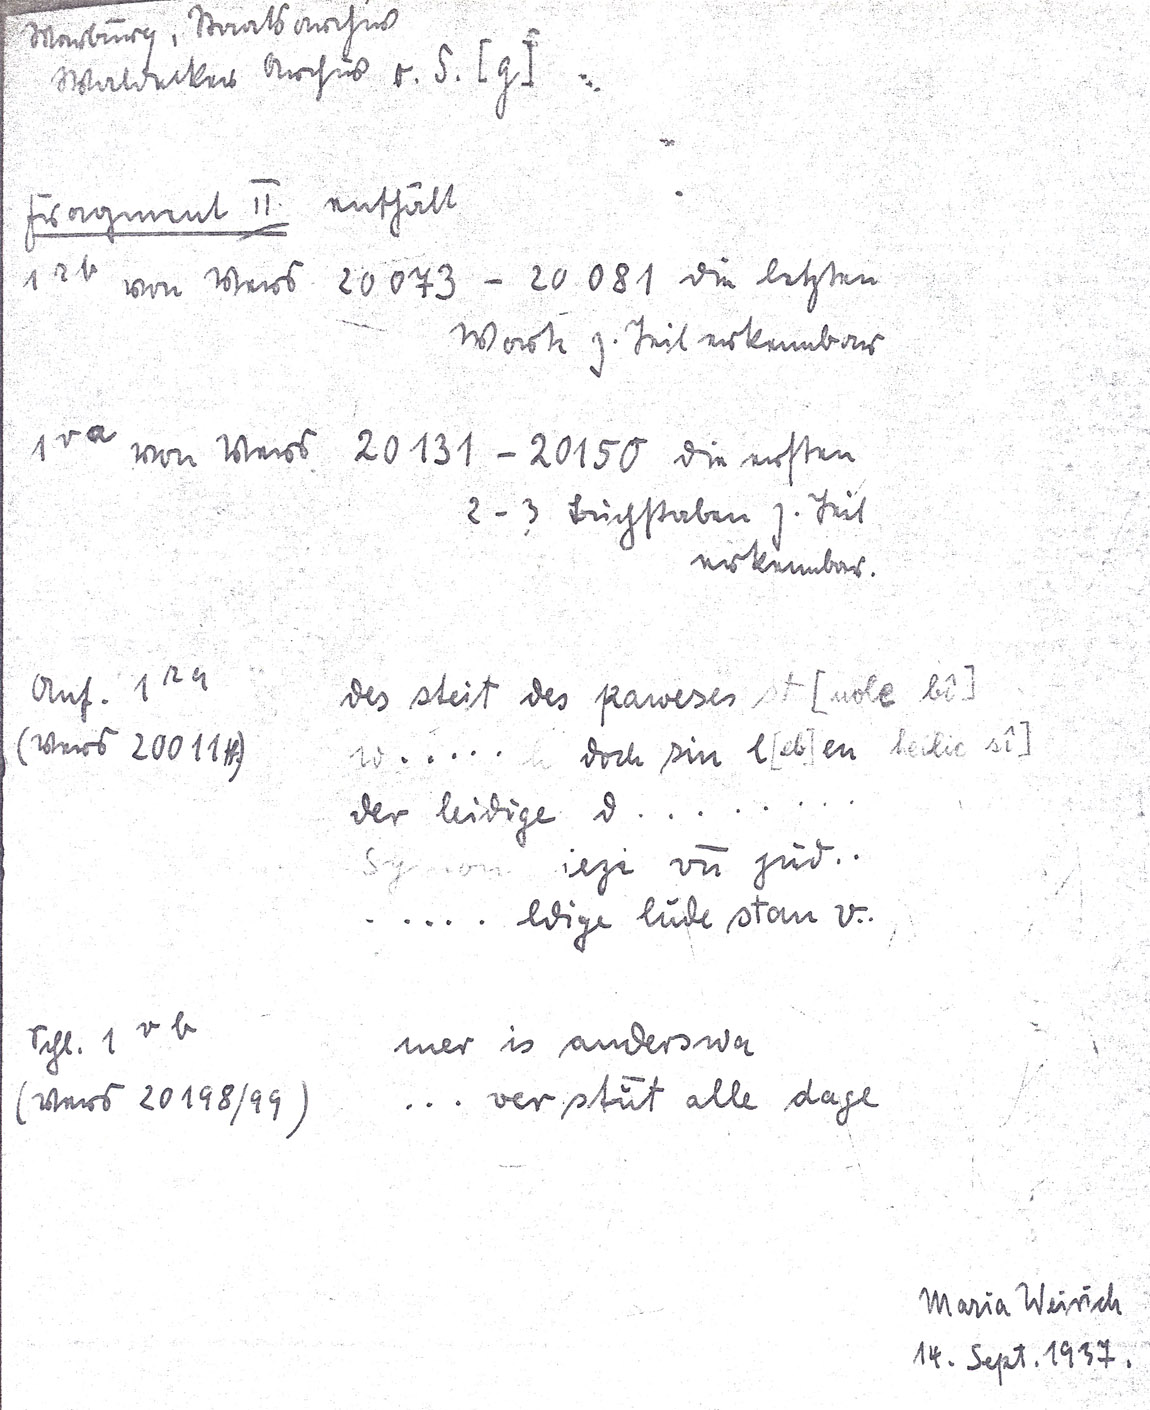 Marburg, Staatsarchiv
Waldecker Archiv o. S. [g]
Fragment II. enthält
1 rb von Vers 20073 - 20081 die letzten
Worte z. Teil erkennbar
1 va von Vers 20131 - 20150 die ersten
2 - 3 Buchstaben z. Teil
erkennbar.
Anf. 1 ra des steit des paweses st[uole bî]
(Vers 20011ff) w..... doch sin l[eb]en heilic sî]
der leidige d........
Symon iezi vn̄ jud..
..... ldige lude stan v..
Schl. 1 vb mer is anderswa
(Vers 20198/99) ... ver stůt alle dage
Maria Weirich
14. Sept. 1937.